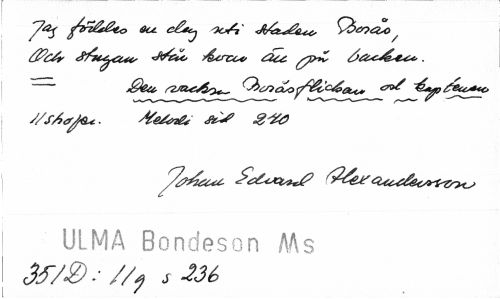 Jag föddes en dag uti staden Borås,
Och stugan står kvar än på backen.
Den vackra Boråsflickan och kaptenen
11 strofer. Melodi sid 240
Johan Edvard Alexandersson
ULMA Bondeson Ms
351D: 11q s 236